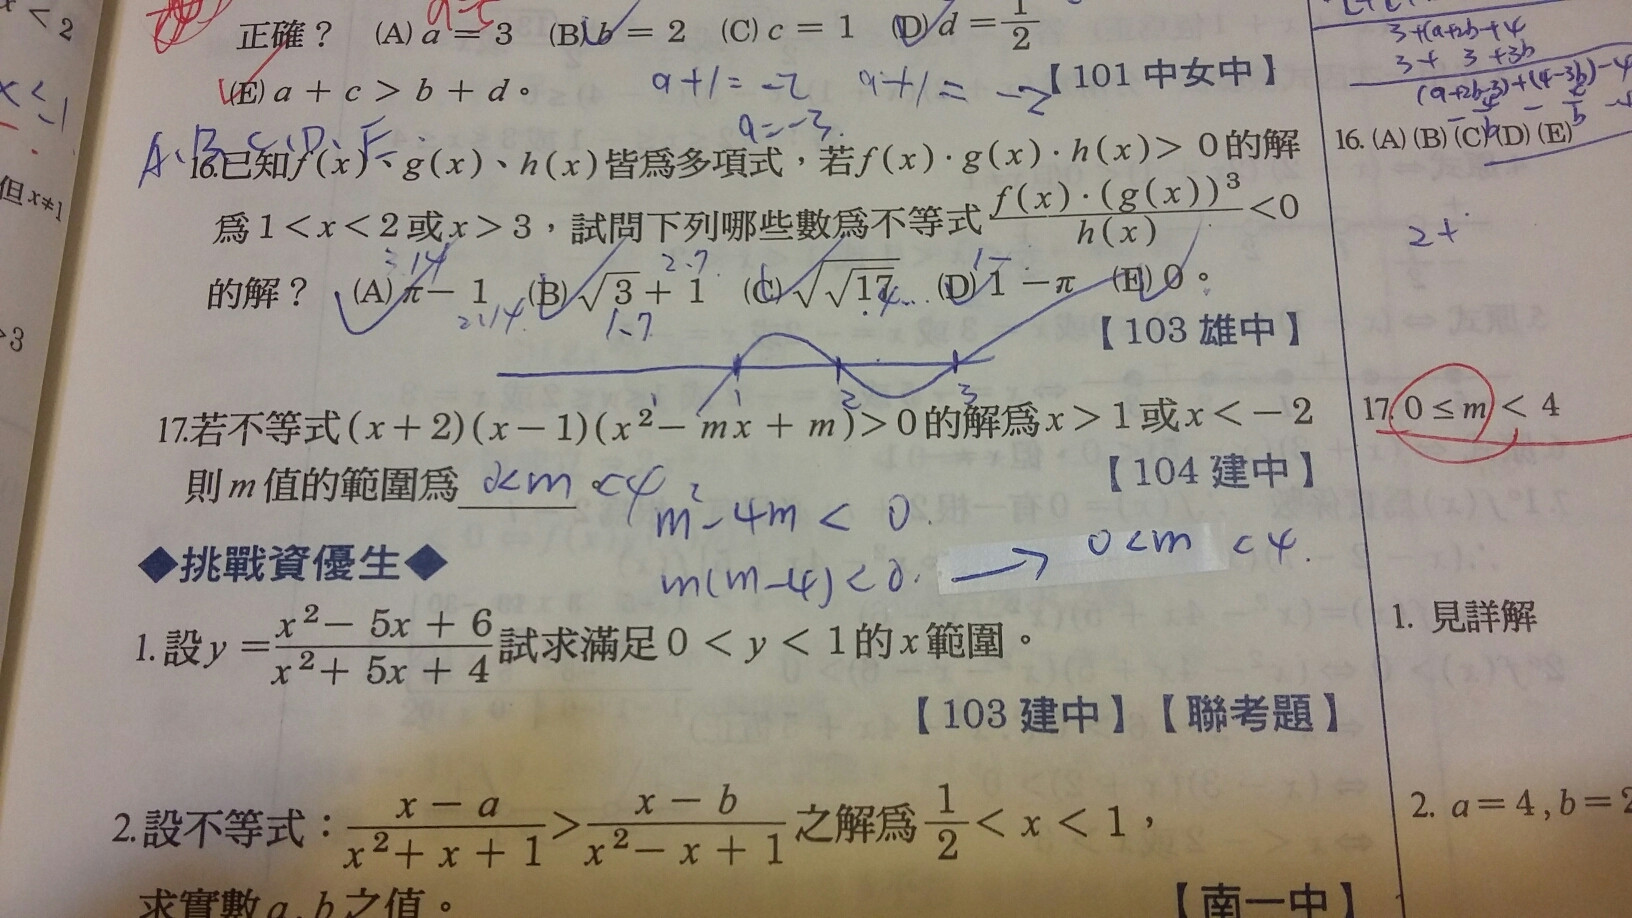 正確？ (A) a = 3 (B) b = 2 (C) c = 1 (D) d = 1/2
(E) a + c > b + d。
【101 中女中】
a+1 = -2 a+1 = -2
a=-3.
A、B、C、D、E
16.已知f(x)、g(x)、h(x)皆為多項式，若f(x)·g(x)·h(x)> 0的解
為1<x<2或x>3，試問下列哪些數為不等式 f(x)·(g(x))³/h(x) <0
的解？ (A) π－1 (B) √3 + 1 (C) √√17 (D) 1－π (E) 0。
3.14 2.7
2.14 1.7
【103 雄中】
1 2 3
17.若不等式(x+2)(x－1)(x²－mx + m)>0的解為x>1或x<－2
則m值的範圍為 0<m<4
【104 建中】
m²-4m < 0.
m(m-4)<0. → 0<m <4.
◆挑戰資優生◆
1.設y = (x²－5x + 6)/(x²+ 5x + 4) 試求滿足0 < y < 1的x範圍。
【103 建中】【聯考題】
2.設不等式：(x－a)/(x²+ x + 1) > (x－b)/(x²－x + 1) 之解為 1/2 < x < 1，
求實數a, b之值。
【南一中】
x < 2
但x≠1
>3
3+(a+2b+4
3+ 3+3b
(a+2b-3)+(4-3b)-4
16. (A) (B) (C) (D) (E)
2+
17. 0≤m < 4
1. 見詳解
2. a=4, b=2